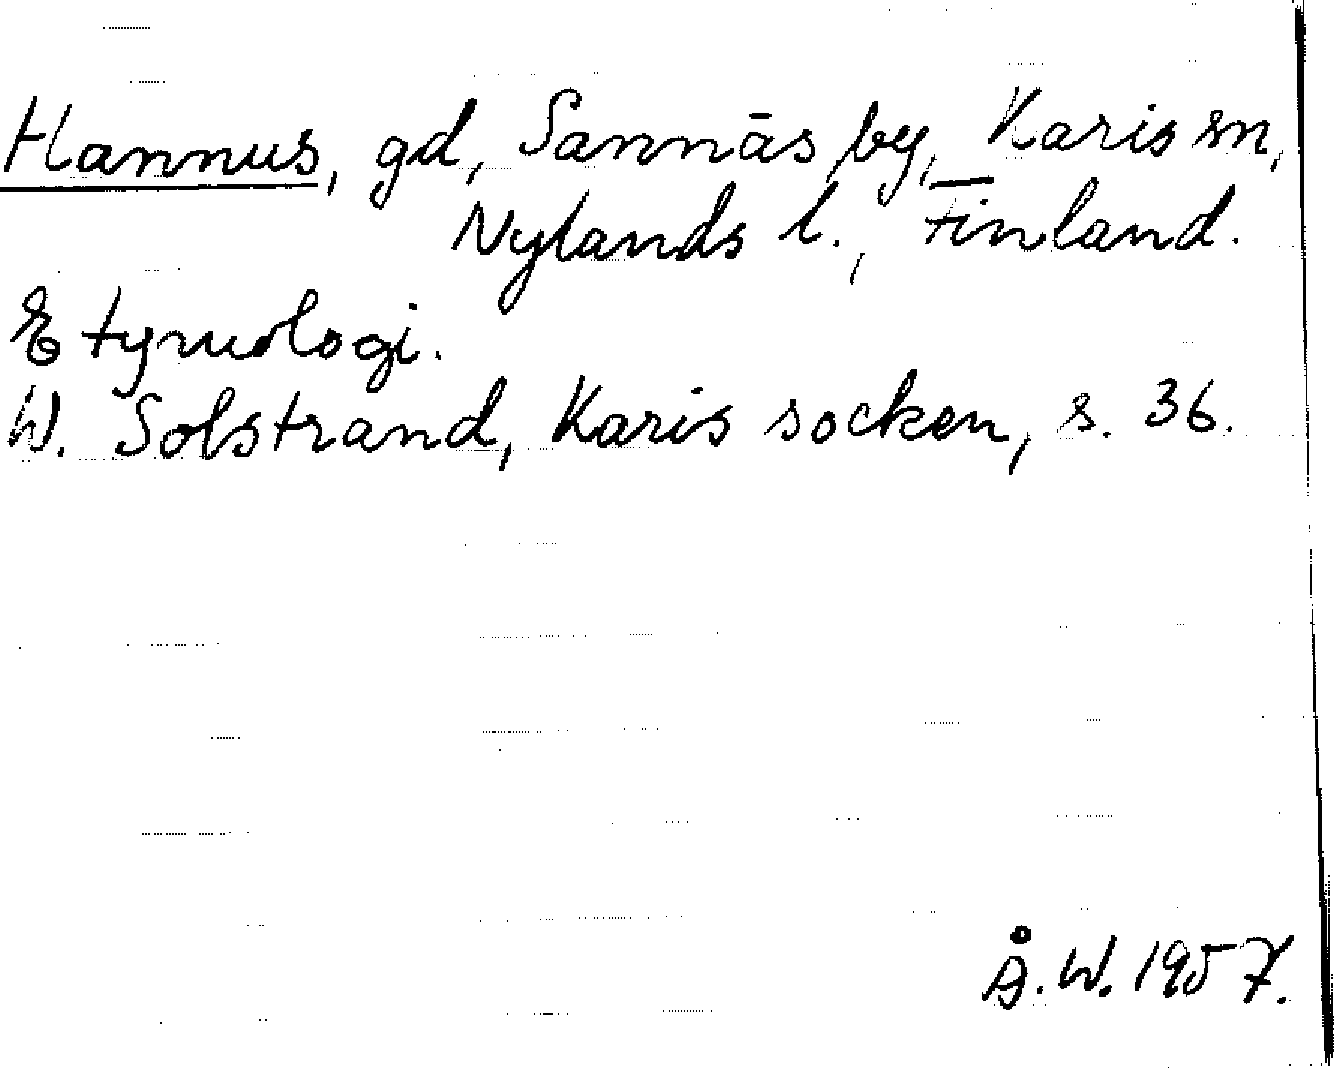 Hannus, gd, Sannäs by, Karis sn,
Nylands l., Finland.
Etymologi.
W. Solstrand, Karis socken, s. 36.
Å.W. 1957.